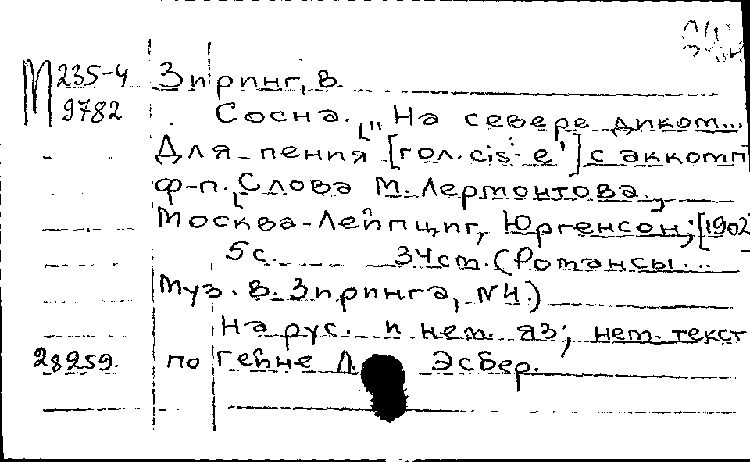 М 235-4 Зиринг, В.
9782 Сосна. "На севере диком...
Для пения [гол. cis'-e'] с аккомп
ф-п. Слова М. Лермонтова.
Москва-Лейпциг, Юргенсон; [1902
5 с. 34 см. (Романсы...
Муз. В. Зиринга, №4.)
На рус. и нем. яз; нем. текст
28259. по Гейне Л. Эсбер.